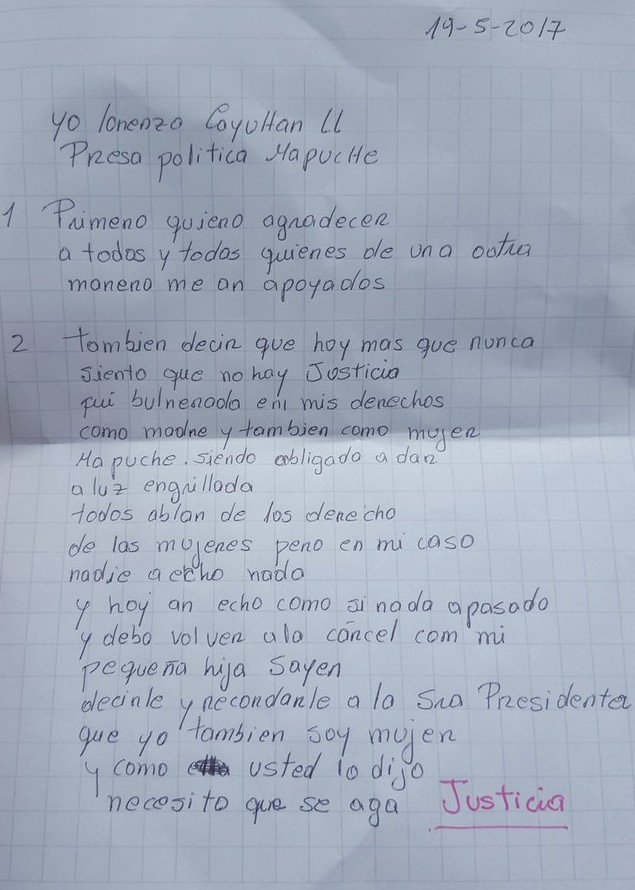 19-5-2017
yo lorenza CayuHan LL
Presa politica MapucHe
1 Primero quiero agradecer
a todos y todas quienes de una ootra
manera me an apoyados
2 tambien decir que hoy mas que nunca
siento que no hay Justicia
fui bulnerada en mis derechos
como madre y tambien como mujer
Mapuche. siendo obligada a dar
a luz engrillada
todos ablan de los derecho
de las mujeres pero en mi caso
nadie a echo nada
y hoy an echo como si nada apasado
y debo volver ala cárcel com mi
pequeña hija Sayen
decirle y recordarle a la Sra Presidenta
que yo tambien soy mujer
y como usted lo dijo
necesito que se aga Justicia